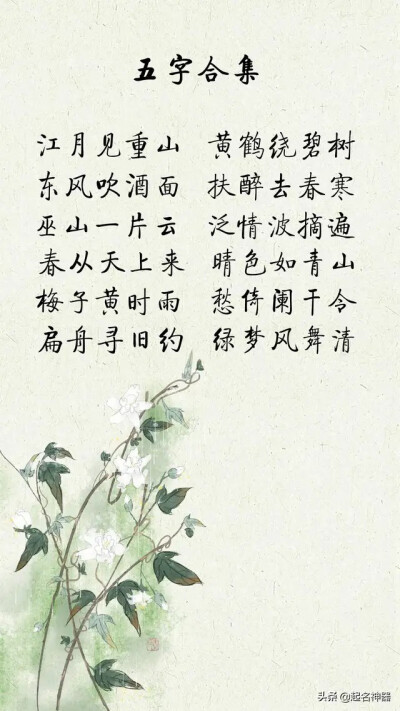 五字合集
江月见重山 黄鹤绕碧树
东风吹酒面 扶醉去春寒
巫山一片云 泛情波摘遍
春从天上来 晴色如青山
梅子黄时雨 愁倚阑干令
扁舟寻旧约 绿梦风舞清
头条 @起名神器